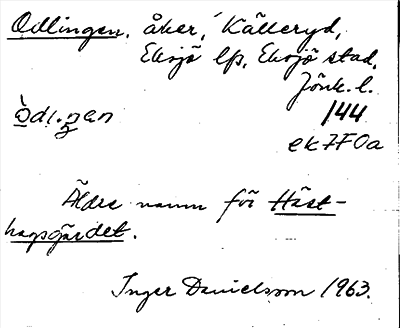 Odlingen, åker, Källeryd,
Eksjö lfs, Eksjö stad,
Jönk. l.
144
ek 7F0a
Äldre namn för Häst-
hagsgärdet.
Inger Danielsson 1963.